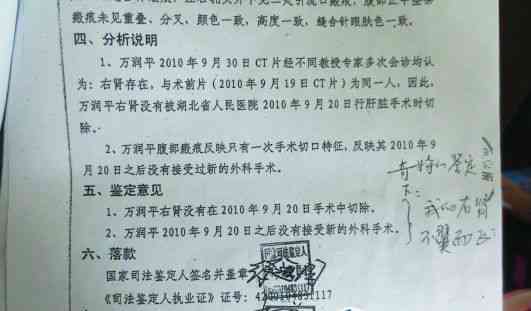 瘢痕未见重叠、分叉，颜色一致，高度一致，缝合针眼肤色一致。
四、分析说明
1、万润平 2010 年 9 月 30 日 CT 片经不同教授专家多次会诊均认
为：右肾存在，与术前片（2010 年 9 月 19 日 CT 片）为同一人，因此，
万润平右肾没有被湖北省人民医院 2010 年 9 月 20 日行肝脏手术时切
除。
2、万润平腹部瘢痕反映只有一次手术切口特征，反映其 2010 年 9
月 20 日之后没有接受过新的外科手术。
五、鉴定意见
1、万润平右肾没有在 2010 年 9 月 20 日手术中切除。
2、万润平 2010 年 9 月 20 日之后没有接受新的外科手术。
六、落款
国家司法鉴定人签名并盖章
《司法鉴定人执业证》证号：
司法鉴定人
奇特的鉴定
我的右肾
不翼而飞